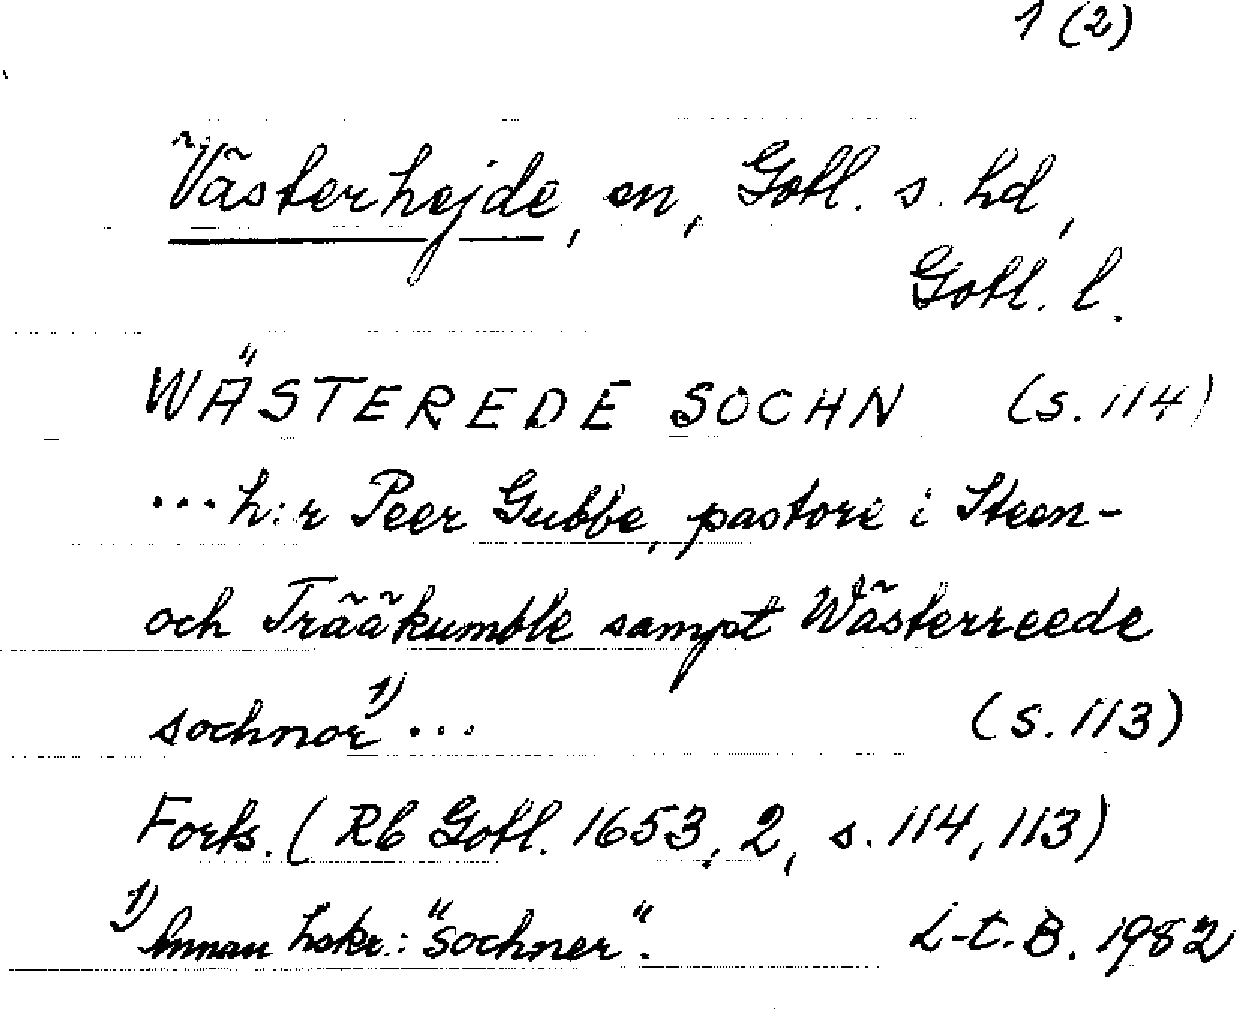 1 (2)
Västerhejde, sn, Gotl. s. hd,
Gotl. l.
WÄSTEREDE SOCHN (s. 114)
... h:r Peer Gubbe, pastore i Steen-
och Trääkumble sampt Wästerreede
sochnor 1) ... (s. 113)
Forts. (Rb Gotl. 1653, 2, s. 114, 113)
1) Annan hskr.: "sochner". L-t. B. 1982